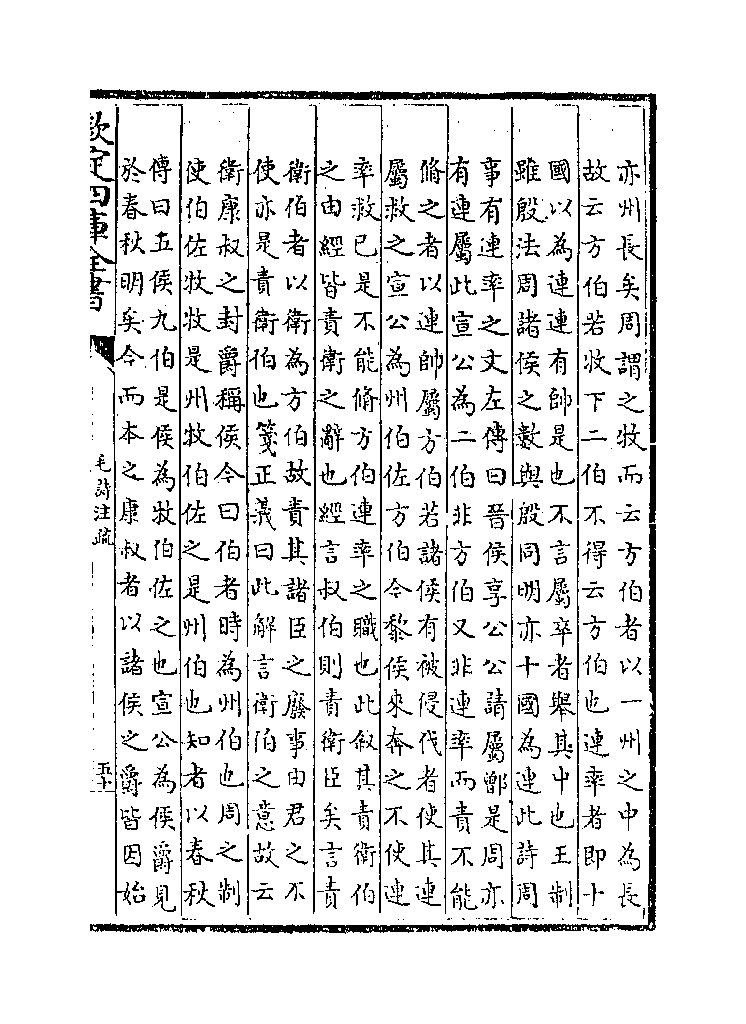 亦州長矣周謂之牧而云方伯者以一州之中為長
故云方伯若牧下二伯不得云方伯也連率者即十
國以為連連有帥是也不言屬卒者舉其中也王制
雖殷法周諸侯之數與殷同明亦十國為連此詩周
事有連率之文左傳曰晉侯享公公請屬鄫是周亦
有連屬此宣公為二伯非方伯又非連率而責不能
脩之者以連帥屬方伯若諸侯有被侵伐者使其連
屬救之宣公為州伯佐方伯今黎侯來奔之不使連
率救已是不能脩方伯連率之職也此叙其責衛伯
之由經皆責衛之辭也經言叔伯則責衛臣矣言責
衛伯者以衛為方伯故責其諸臣之廢事由君之不
使亦是責衛伯也箋正義曰此解言衛伯之意故云
衛康叔之封爵稱侯今曰伯者時為州伯也周之制
使伯佐牧牧是州牧伯佐之是州伯也知者以春秋
傳曰五侯九伯是侯為牧伯佐之也宣公為侯爵見
於春秋明矣今而本之康叔者以諸侯之爵皆因始
欽定四庫全書
毛詩注疏
五十